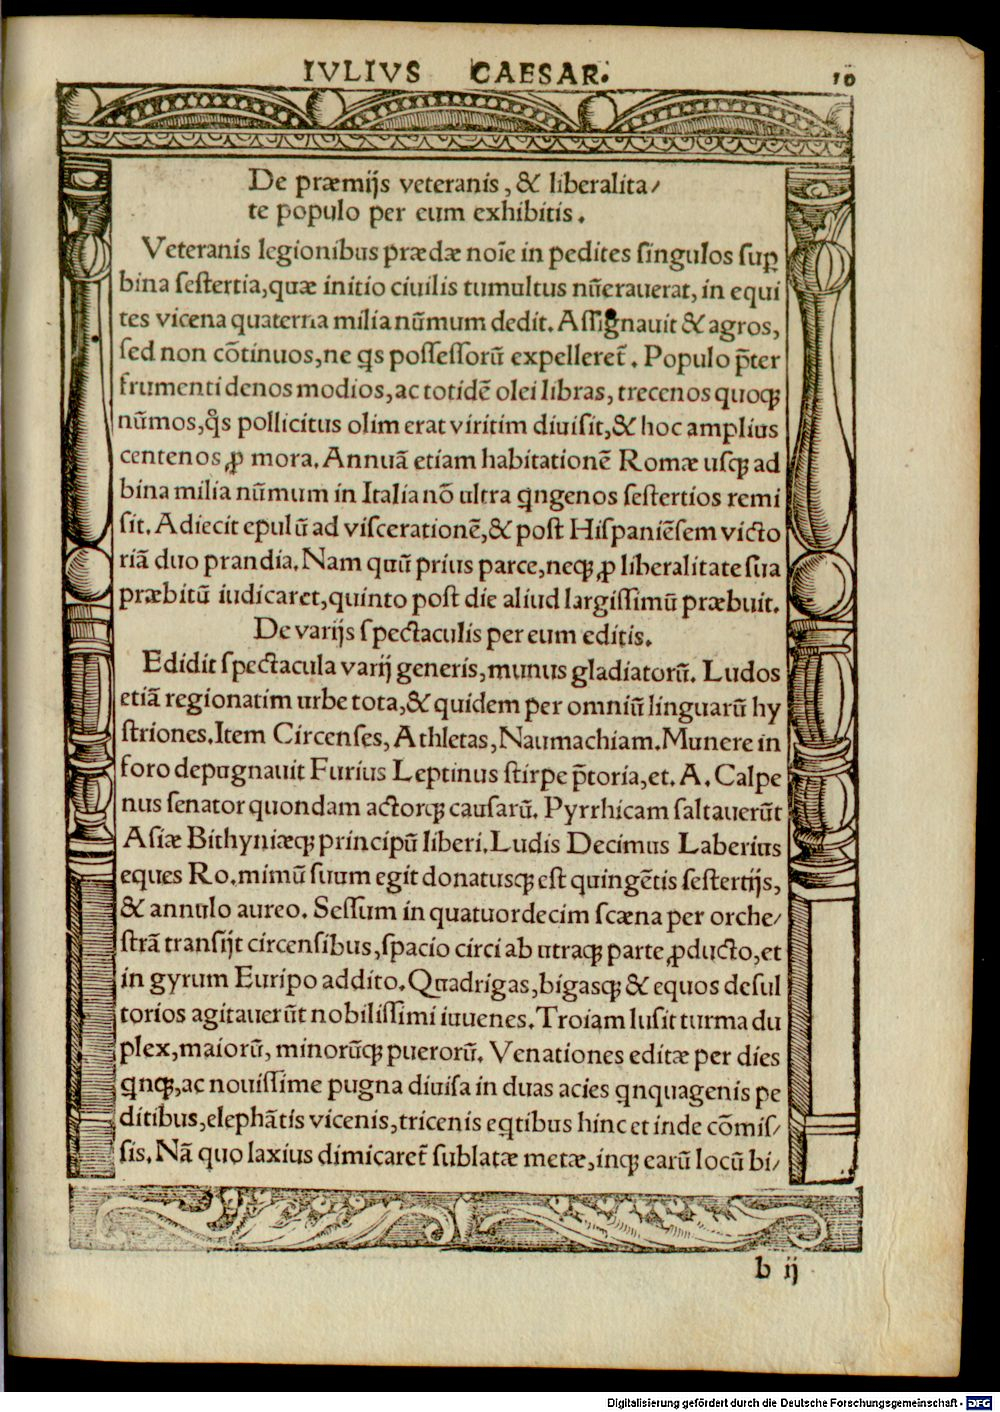 IVLIVS CAESAR.
10
De præmijs veteranis, & liberalita/
te populo per eum exhibitis.
Veteranis legionibus prædæ noīe in pedites singulos suꝑ
bina sestertia, quæ initio ciuilis tumultus nūerauerat, in equi
tes vicena quaterna milia nūmum dedit. Assignauit & agros,
sed non cōtinuos, ne ꝗs possessorū expelleret̄. Populo p̄ter
frumenti denos modios, ac totidē olei libras, trecenos quoqꝫ
nūmos, qͦs pollicitus olim erat viritim diuisit, & hoc amplius
centenos ꝓ mora. Annuā etiam habitationē Romæ usqꝫ ad
bina milia nūmum in Italia nō ultra ꝗngenos sestertios remi
sit. Adiecit epulū ad viscerationē, & post Hispaniēsem victo
riā duo prandia. Nam quū prius parce, neqꝫ ꝓ liberalitate sua
præbitū iudicaret, quinto post die aliud largissimū præbuit.
De varijs spectaculis per eum editis.
Edidit spectacula varij generis, munus gladiatorū. Ludos
etiā regionatim urbe tota, & quidem per omniū linguarū hy
striones. Item Circenses, Athletas, Naumachiam. Munere in
foro depugnauit Furius Leptinus stirpe p̄toria, et. A. Calpe
nus senator quondam actorqꝫ causarū. Pyrrhicam saltauerūt
Asiæ Bithyniæqꝫ principū liberi. Ludis Decimus Laberius
eques Ro. mimū suum egit donatusqꝫ est quingētis sestertijs,
& annulo aureo. Sessum in quatuordecim scæna per orche/
strā transijt circensibus, spacio circi ab utraqꝫ parte ꝓducto, et
in gyrum Euripo addito. Quadrigas, bigasqꝫ & equos desul
torios agitauerūt nobilissimi iuuenes. Troiam lusit turma du
plex, maiorū, minorūqꝫ puerorū. Venationes editæ per dies
ꝗnqꝫ, ac nouissime pugna diuisa in duas acies ꝗnquagenis pe
ditibus, elephātis vicenis, tricenis eꝗtibus hinc et inde cōmis/
sis. Nā quo laxius dimicaret̄ sublatæ metæ, inqꝫ earū locū bi/
b ij
Digitalisierung gefördert durch die Deutsche Forschungsgemeinschaft - DFG